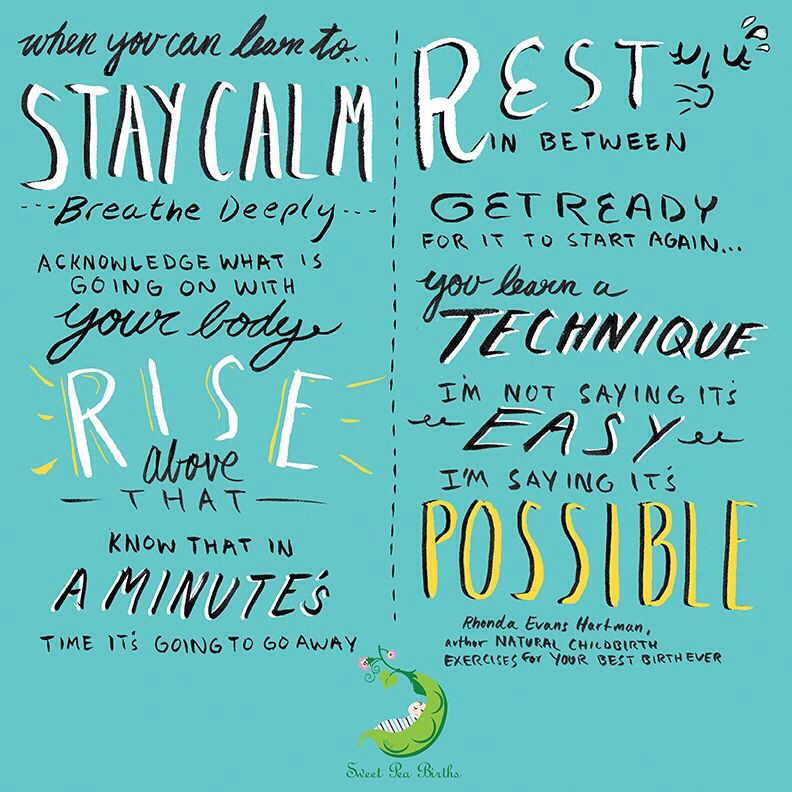 when you can learn to...
STAY CALM
---Breathe Deeply---
ACKNOWLEDGE WHAT IS
GOING ON WITH
your body
RISE
above
THAT
KNOW THAT IN
A MINUTE'S
TIME IT'S GOING TO GO AWAY
REST
IN BETWEEN
GET READY
FOR IT TO START AGAIN...
you learn a
TECHNIQUE
I'M NOT SAYING IT'S
EASY
I'M SAYING IT'S
POSSIBLE
Rhonda Evans Hartman,
author NATURAL CHILDBIRTH
EXERCISES for YOUR BEST BIRTH EVER
Sweet Pea Births